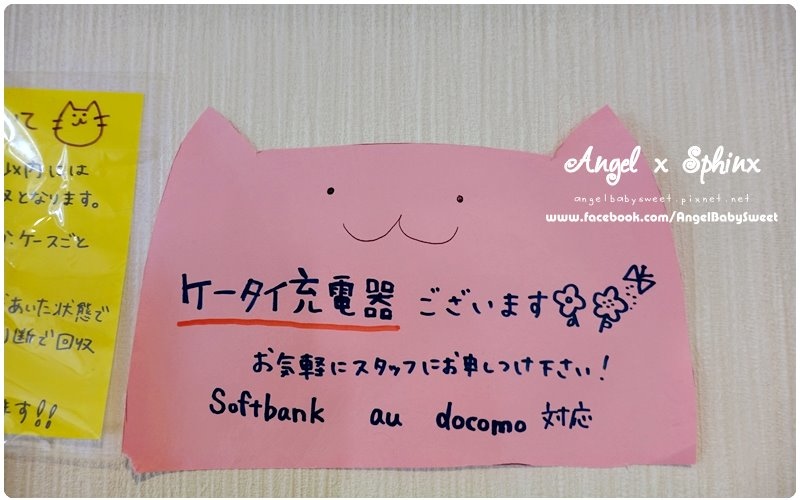 て
以内には
となります。
ケースごと
あいた状態で
断で回収
ます!!
Angel x Sphinx
angelbabysweet.pixnet.net
www.facebook.com/AngelBabySweet
ケータイ充電器 ございます
お気軽にスタッフにお申しつけ下さい!
Softbank au docomo 対応